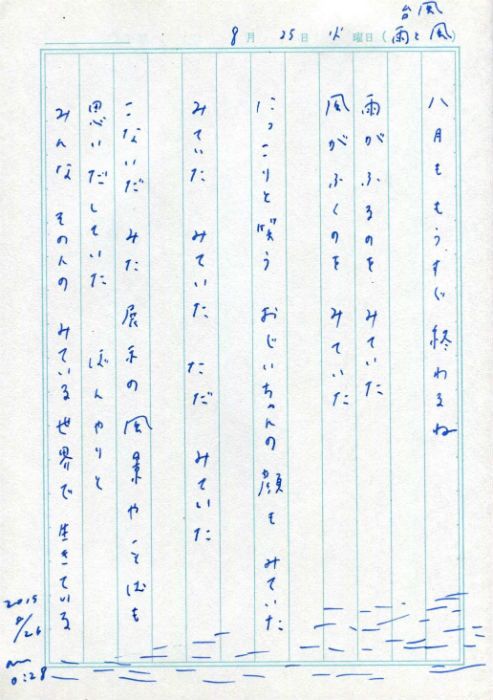 8月25日火曜日(台風
雨と風)
八月ももうすぐ終わるね
雨がふるのを みていた
風がふくのを みていた
にっこりと笑う おじいちゃんの 顔も みていた
みていた みていた ただ みていた
こないだ みた 展示の 風景や ことばも
思いだしていた ぼんやりと
みんな その人の みている 世界で 生きている
2015
8/26
am
0:28